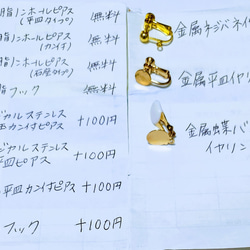 脂ノンホールピアス 無料
(平皿タイプ)
脂ノンホールピアス 無料
(カン付)
脂ノンホールピアス 無料
(石座タイプ)
脂フック 無料
ジカルステンレス
カン付ピアス +100円
ジカルステンレス
平皿ピアス +100円
平皿カン付ピアス +100円
フック +100円
金属ネジバネイ
金属平皿イヤリ
金属蝶バ
イヤリン